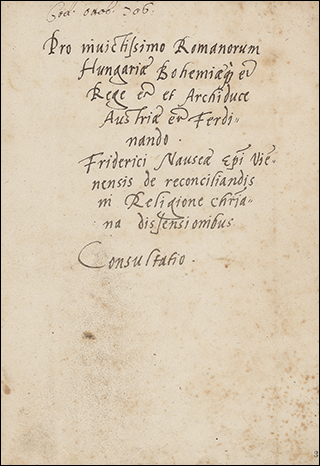 Pro invictissimo Romanorum
Hungariæ Bohemiæq̃ etc
Rege etc et Archiduce
Austriæ etc Ferdi-
nando.
Friderici Nauseæ Epi Vie-
nensis de reconciliandis
in Religione chria-
na dissensionibus
Consultatio.
3